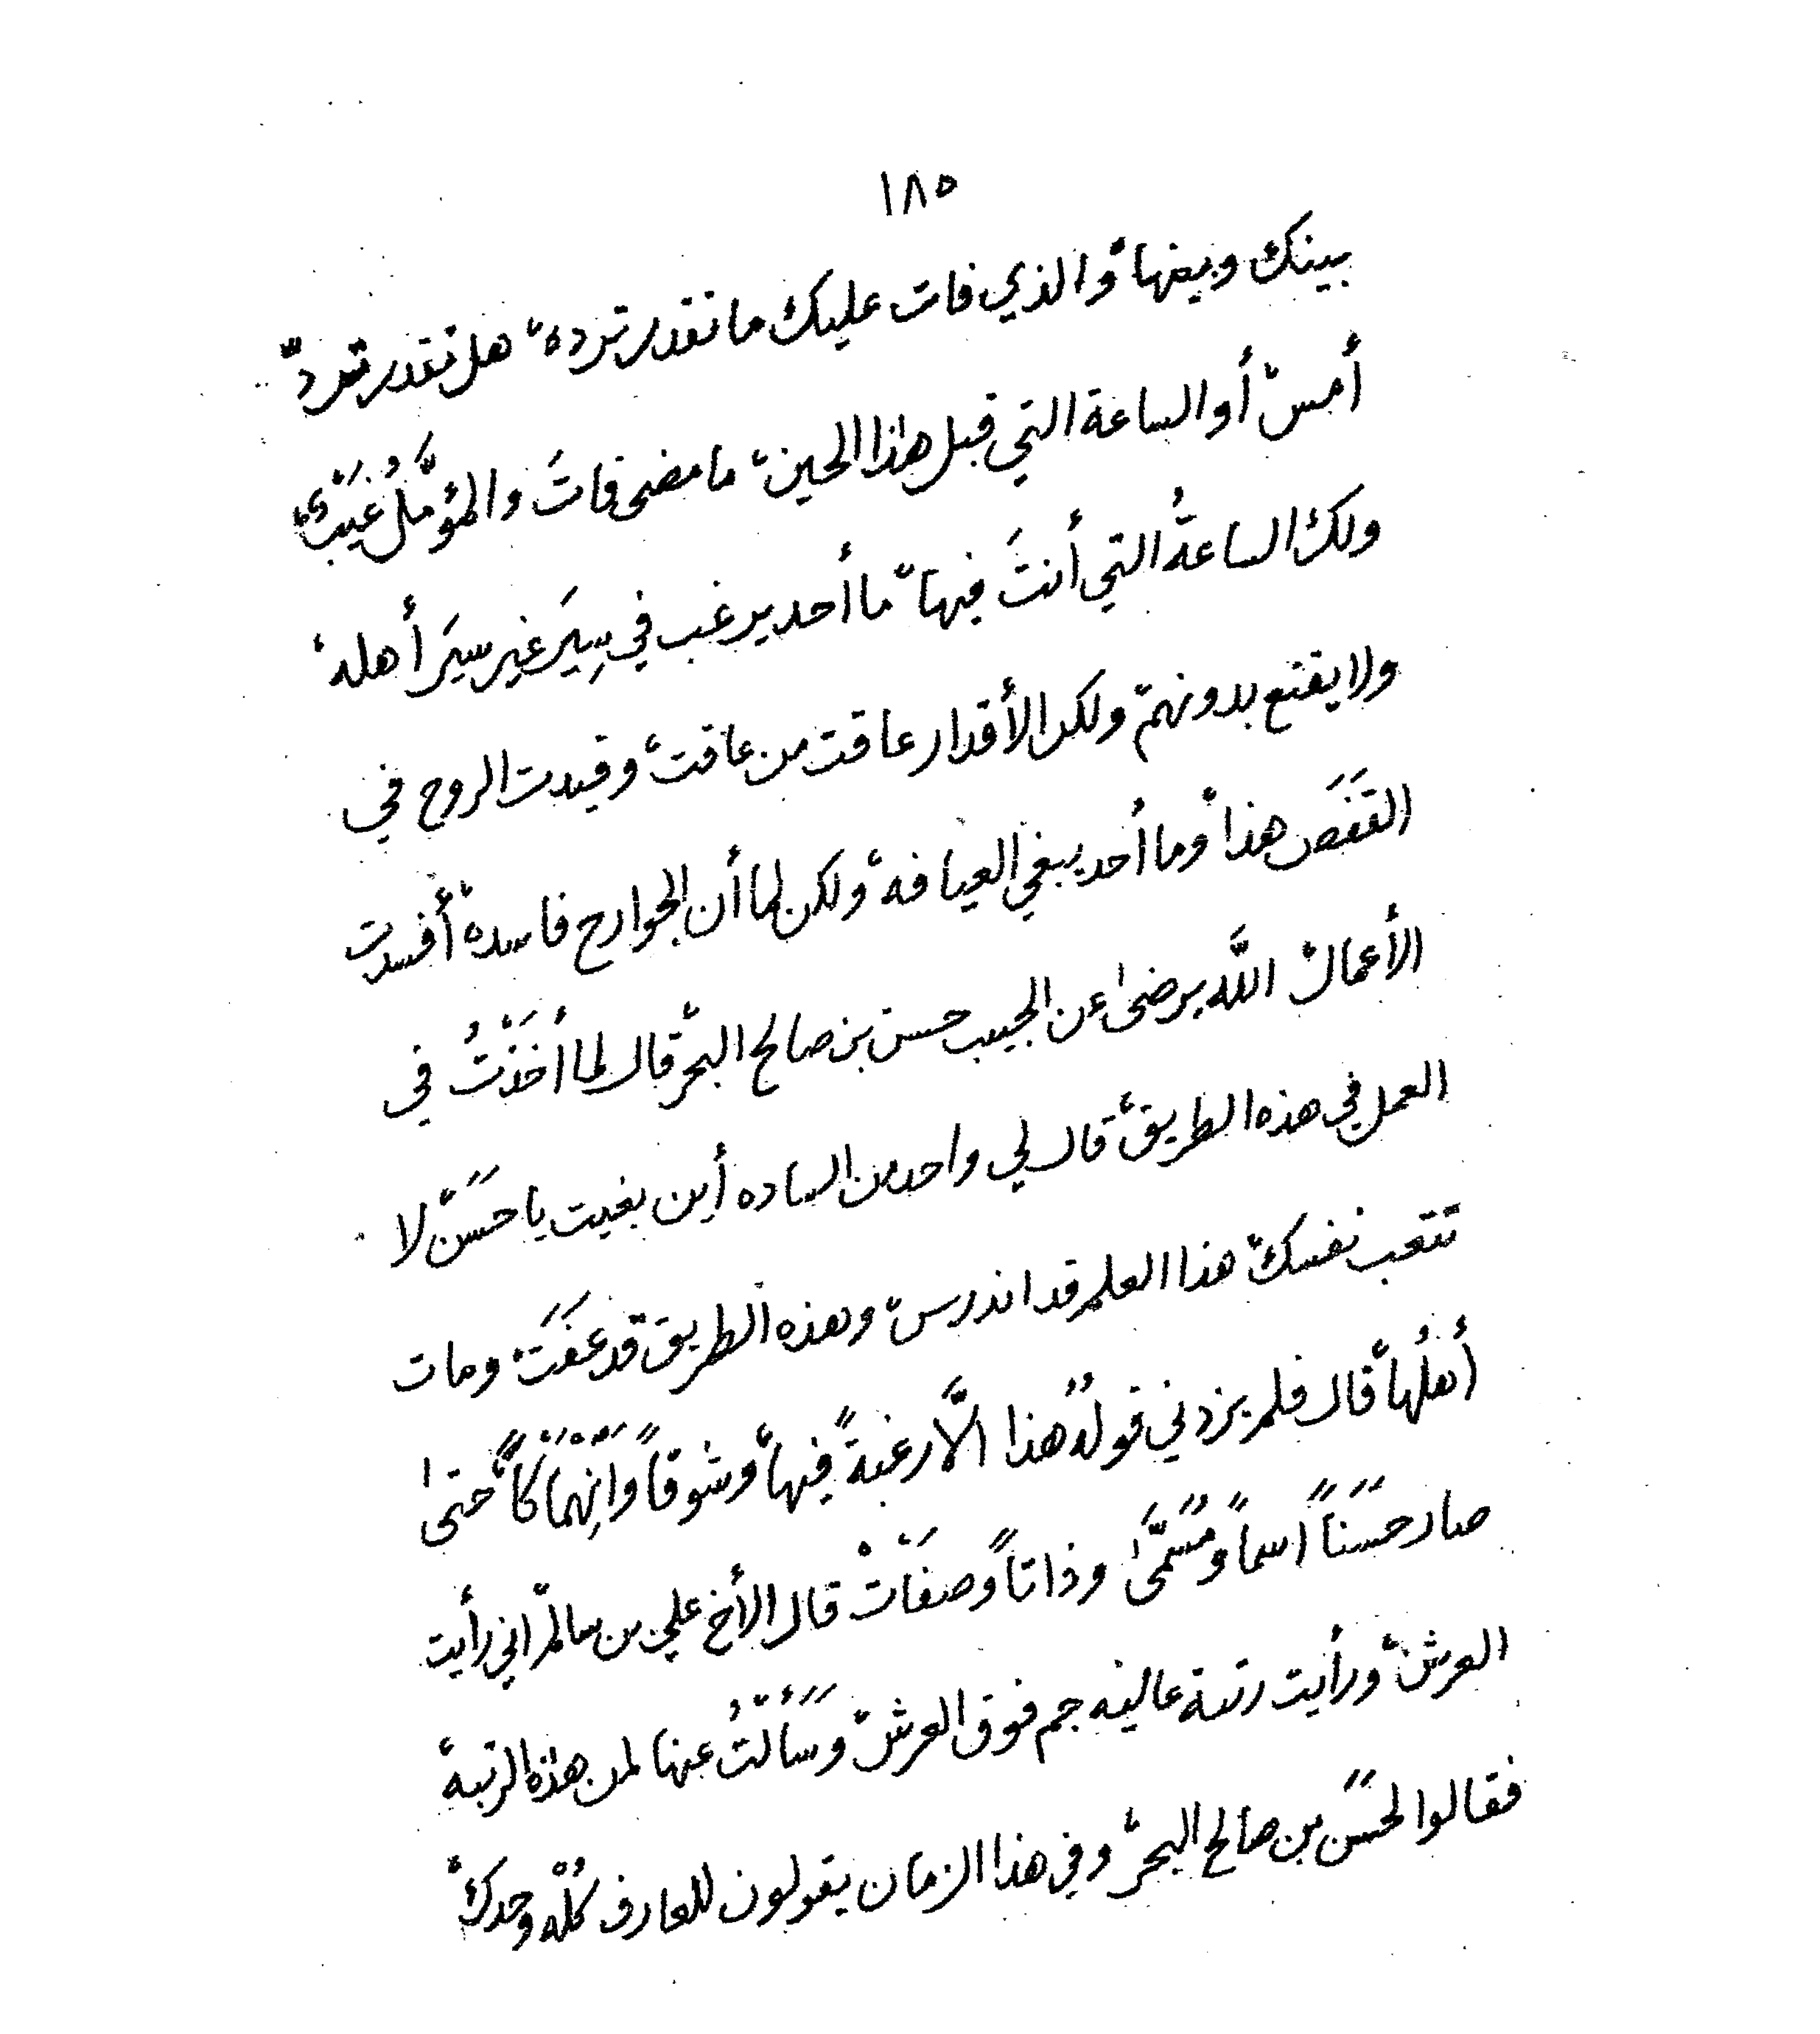 ١٨٥
بينك وبينها، والذي فات عليك ما تقدر ترده، هل تقدر تردّ
أمس، أو الساعة التي قبل هٰذا الحين، ما مضى فاتَ والمؤمَّلُ غَيْبٌ،
ولك الساعةُ التي أنتَ فيها، ما أحد يرغب في سِيَر غير سيَر أهله،
ولا يقنع بدونهم، ولكن الأقدار عاقت من عاقت، وقيدت الروح في
القَفَص هذا، وما أحد يبغي العيافه، ولكن لما أن الجوارح فاسده، أفسدت
الأعمال، اللَّه يرضىٰ عن الحبيب حسن بن صالح البحر، قال لما أَخَذْتُ في
العمل في هذه الطريق، قال لي واحد من الساده أين بغيت يا حسَن، لا
تتعب نفسك، هذا العلم قد اندرس، وهذه الطريق قد عفَت، ومات
أهلُها، قال فلم يزدني قولُهُ هذا الَّا رغبةً فيها، وشوقاً وَانْهِمَاكاً، حتىٰ
صار حسَناً اسماً ومُسَمَّىٰ وذاتاً وصفَاتْ، قال الأخ علي بن سالم، اني رأيت
العرش، ورأيت رتبة عاليه جم فوق العرش، وسَأَلْتُ عنها لمن هٰذه الرتبة،
فقالوا لحسَن بن صالح البحر، وفي هذا الزمان يقولون للعارف كُلْه وحدك،